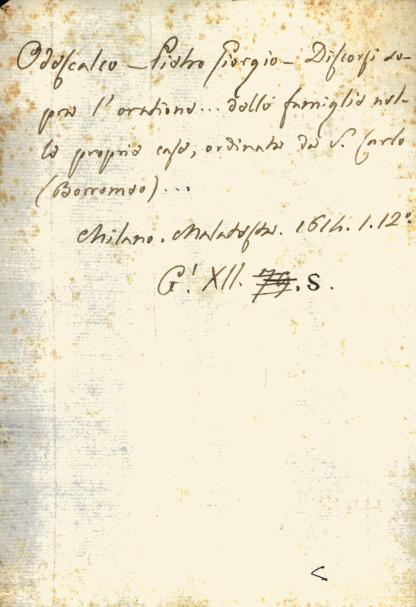 Odescalco - Pietro Giorgio - Discorsi so-
pra l'oratione... delle famiglie nel-
le proprie case, ordinata da S. Carlo
(Borromeo)...
Milano. Malatesta. 1614. 1.12°
G. XII. 79. S.